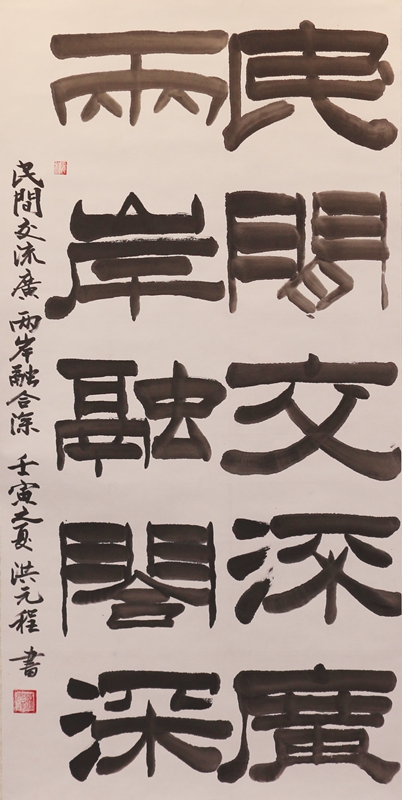 民閒交流廣
兩岸融閤深
民間交流廣 兩岸融合深 壬寅之夏 洪元程 書